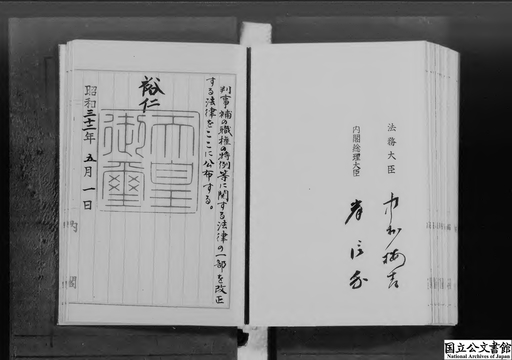 法務大臣 中村梅吉
内閣総理大臣 岸信介
判事補の職権の特例等に関する法律の一部を改正
する法律をここに公布する。
裕仁
天皇
御璽
昭和三十二年五月一日
内閣
国立公文書館
National Archives of Japan